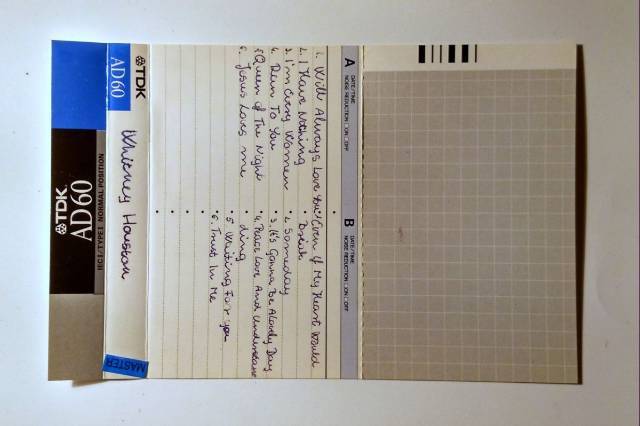 A DATE/TIME
NOISE REDUCTION □ON □OFF
1. Will Always Love You
2. I Have Nothing
3. I'm Every Women
4. Run To You
5 Queen of The Night
6. Jesus Loves me
B DATE/TIME
NOISE REDUCTION □ON □OFF
Even if My Heart Would
Break
2. Someday
3. It's Gonna Be A Lovely Day
4. Peace Love And Understan
ding
5 Waiting For you
6. Trust In Me
TDK
AD60
Whitney Houston
MASTER
IECI/TYPE I NORMAL POSITION
AD60
TDK